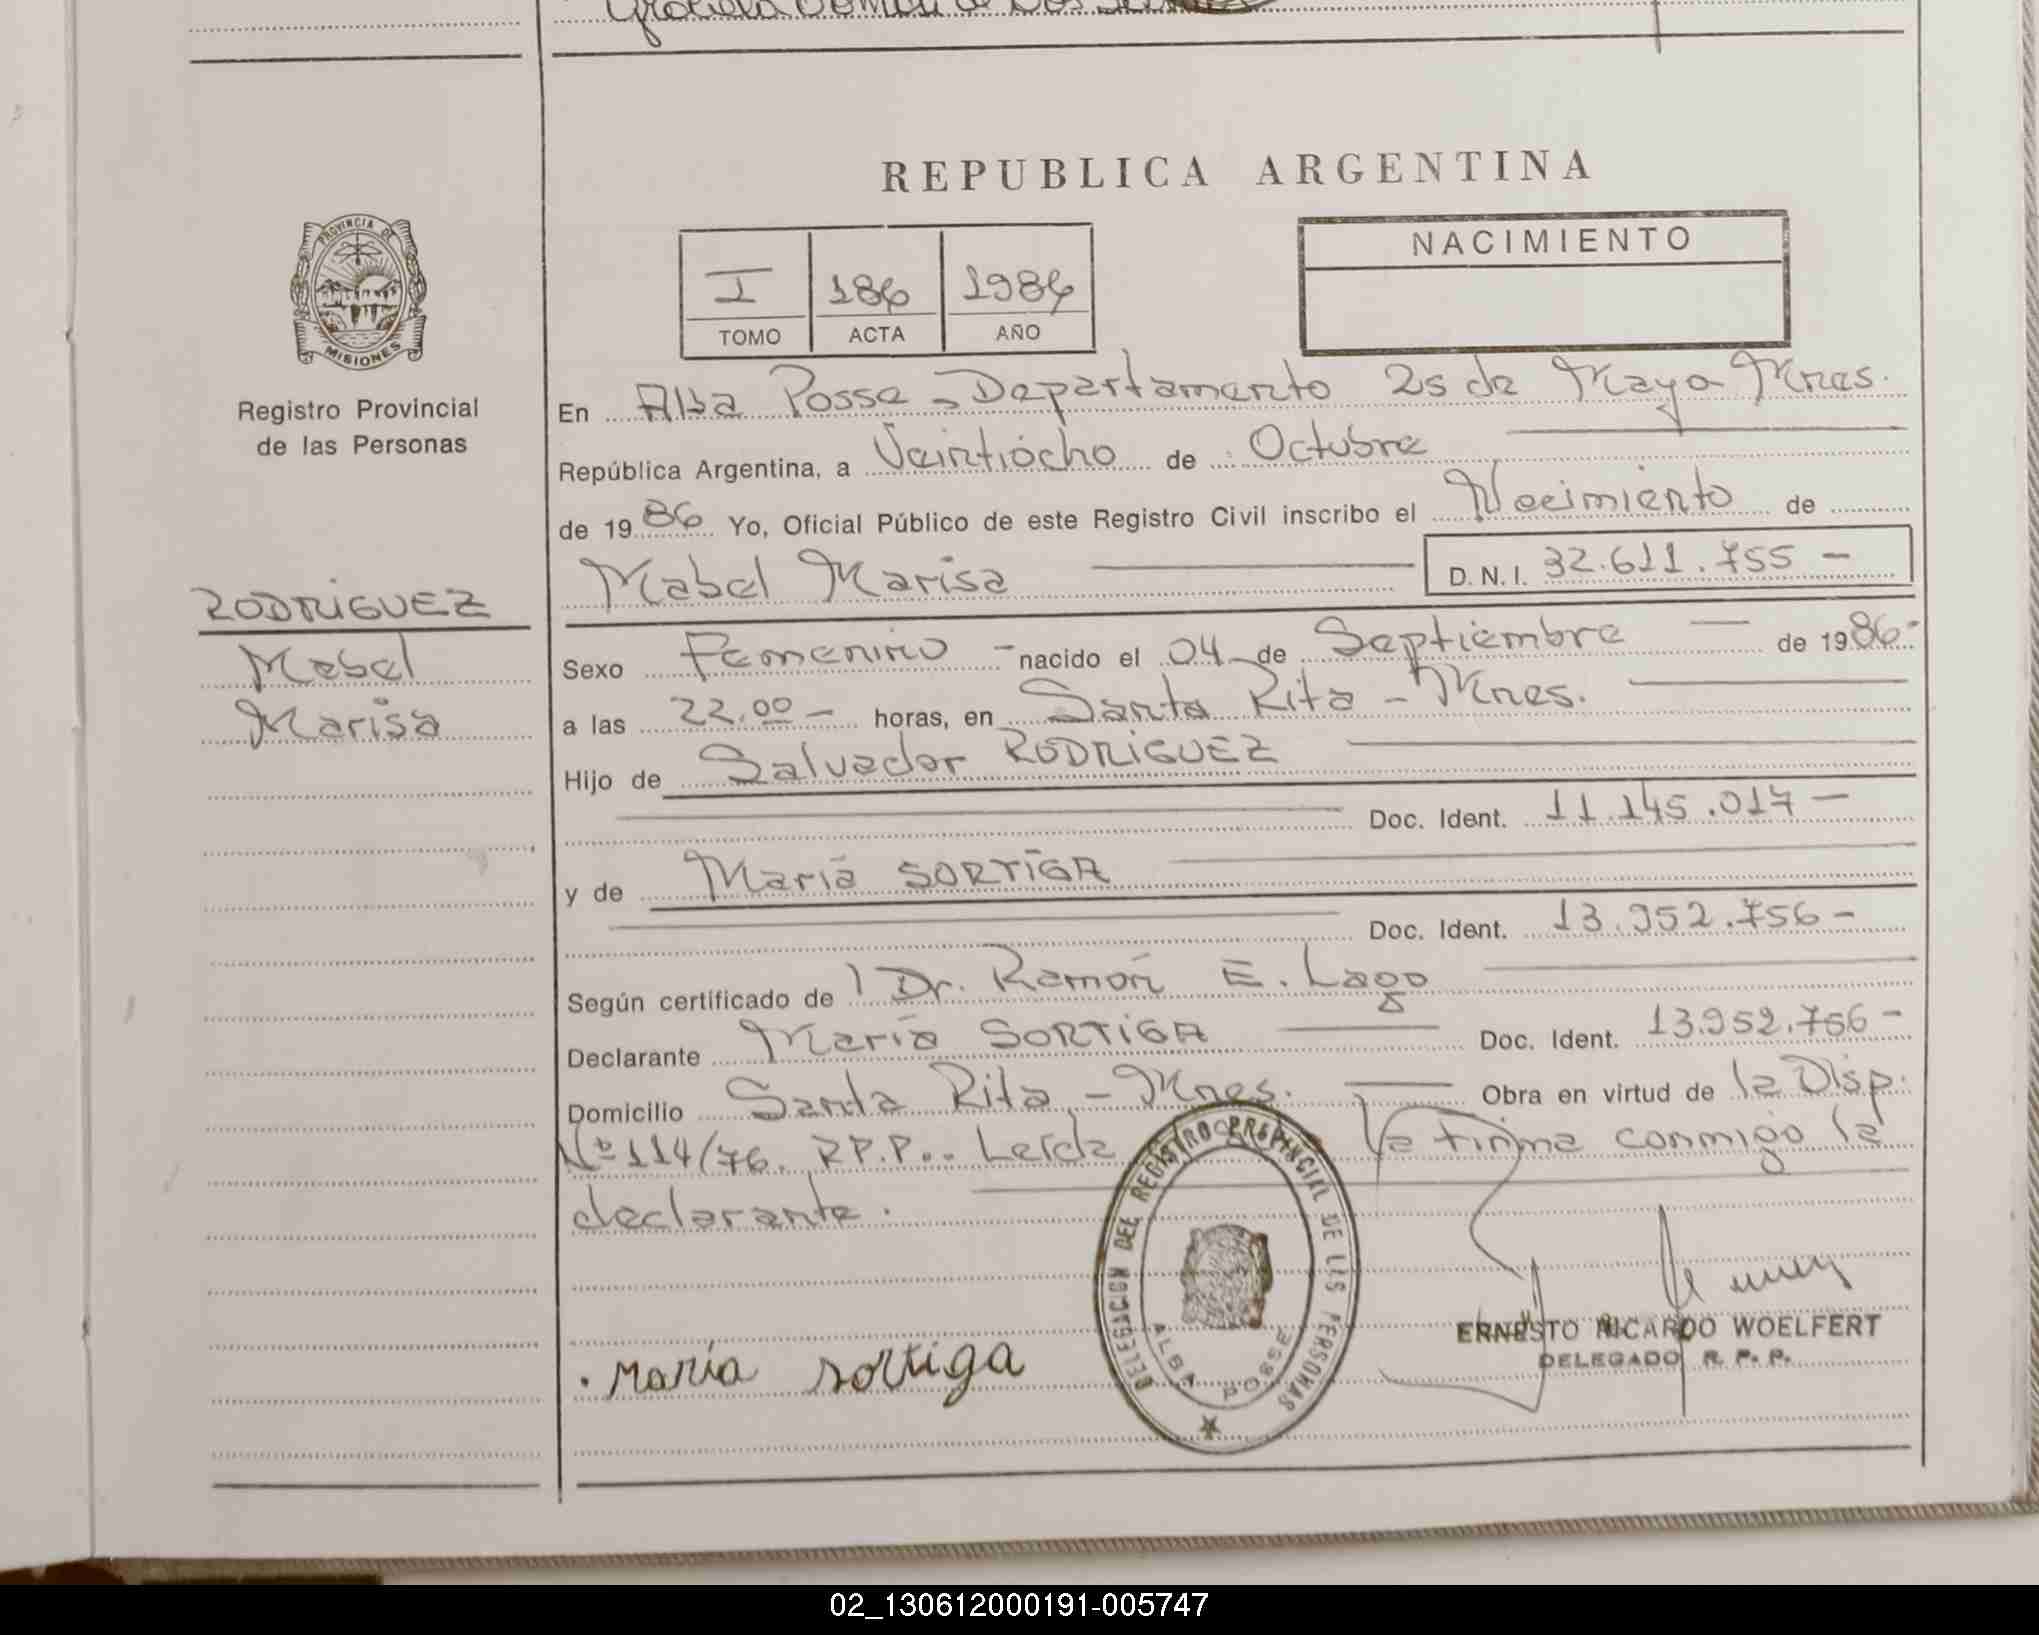 REPUBLICA ARGENTINA
PROVINCIA DE
MISIONES
Registro Provincial
de las Personas
RODRIGUEZ
Mabel
Marisa
I 186 1986
TOMO ACTA AÑO
NACIMIENTO
En Alba Posse - Departamento 25 de Mayo - Mnes.
República Argentina, a Veintiocho de Octubre
de 1986 Yo, Oficial Público de este Registro Civil inscribo el Nacimiento de
Mabel Marisa D.N.I. 32.611.755 -
Sexo Femenino - nacido el 04 de Septiembre - de 1986 -
a las 22.00 - horas, en Santa Rita - Mnes.
Hijo de Salvador RODRIGUEZ
Doc. Ident. 11.145.017 -
y de María SORTIGA
Doc. Ident. 13.952.756 -
Según certificado de 1 Dr. Ramón E. Lago
Declarante María SORTIGA Doc. Ident. 13.952.756 -
Domicilio Santa Rita - Mnes. Obra en virtud de la Disp.
Nº 114/76. R.P.P.. Leída la firma conmigo la
declarante.
DELEGACION DEL REGISTRO PROVINCIAL DE LAS PERSONAS
ALBA POSSE
María Sortiga
ERNESTO RICARDO WOELFERT
DELEGADO R. P. P.
02_130612000191-005747